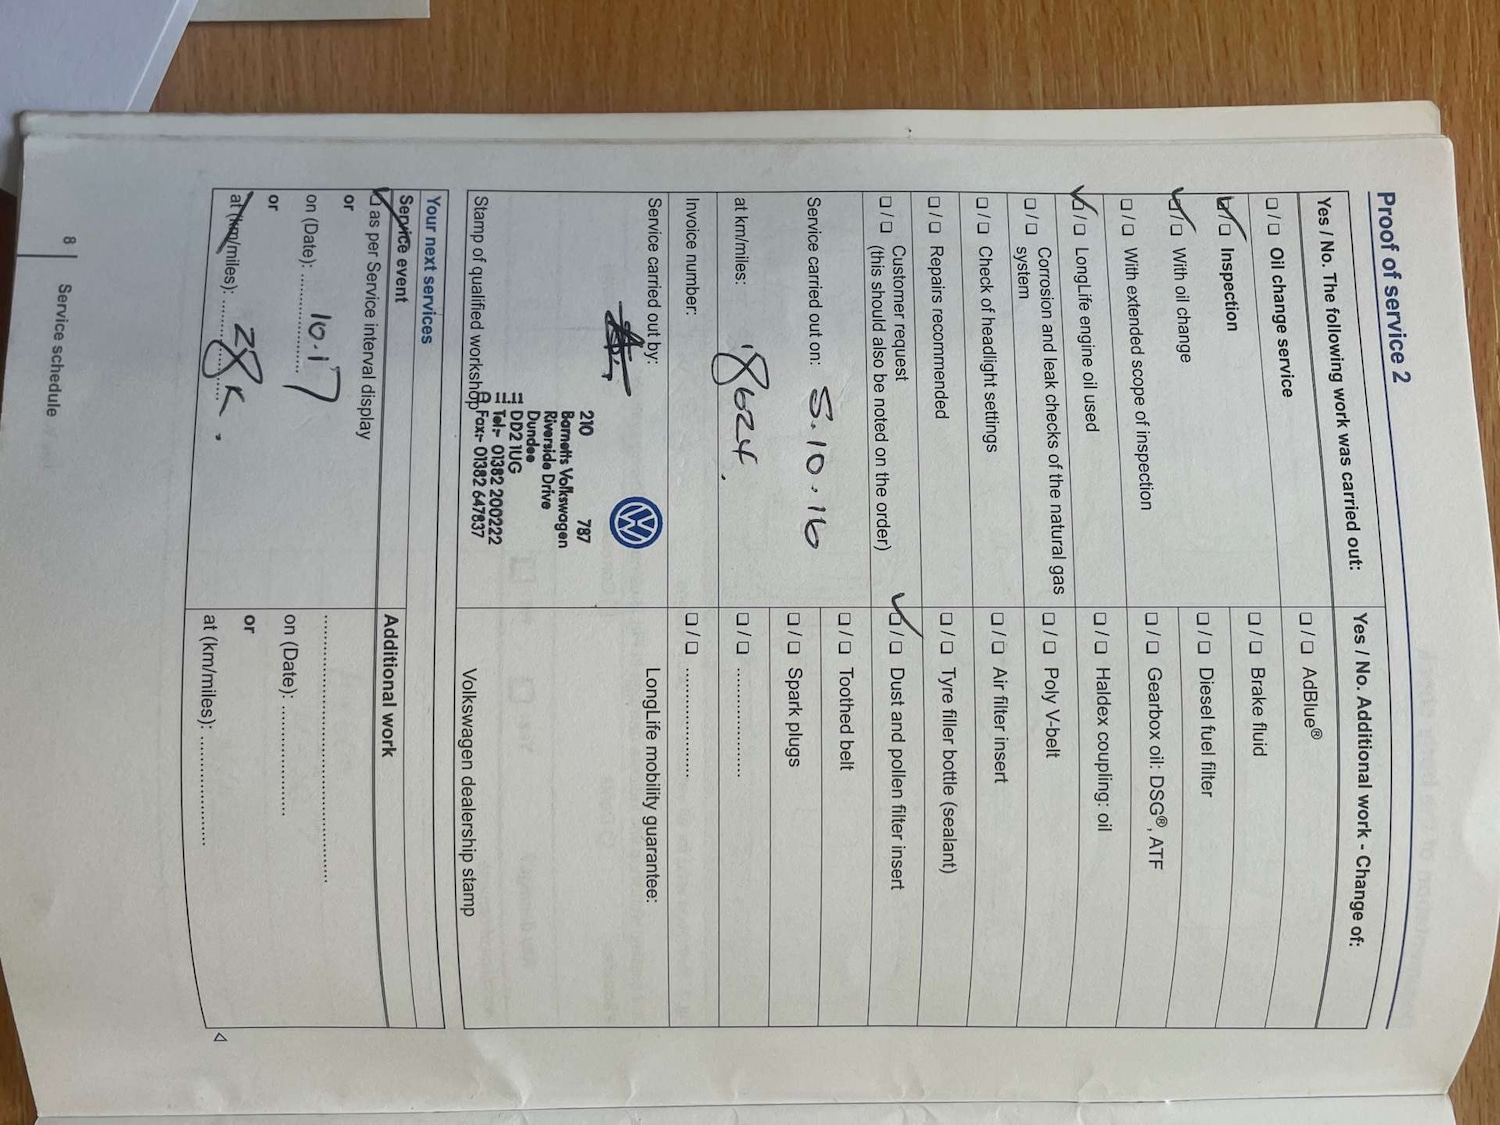 Proof of service 2
Yes / No. The following work was carried out:
❏ / ❏ Oil change service
❏ / ❏ Inspection
❏ / ❏ With oil change
❏ / ❏ With extended scope of inspection
❏ / ❏ LongLife engine oil used
❏ / ❏ Corrosion and leak checks of the natural gas
system
❏ / ❏ Check of headlight settings
❏ / ❏ Repairs recommended
❏ / ❏ Customer request
(this should also be noted on the order)
Service carried out on: 5.10.16
at km/miles: 18624.
Invoice number:
Service carried out by:
210 787
Barnetts Volkswagen
Riverside Drive
Dundee
DD2 1UG
Tel:- 01382 200222
Fax:- 01382 647837
Stamp of qualified workshop
Yes / No. Additional work - Change of:
❏ / ❏ AdBlue®
❏ / ❏ Brake fluid
❏ / ❏ Diesel fuel filter
❏ / ❏ Gearbox oil: DSG®, ATF
❏ / ❏ Haldex coupling: oil
❏ / ❏ Poly V-belt
❏ / ❏ Air filter insert
❏ / ❏ Tyre filler bottle (sealant)
❏ / ❏ Dust and pollen filter insert
❏ / ❏ Toothed belt
❏ / ❏ Spark plugs
❏ / ❏ ................
❏ / ❏ ................
LongLife mobility guarantee:
Volkswagen dealership stamp
Your next services
Service event
❏ as per Service interval display
or
on (Date): 10.17
or
at (km/miles): 28K.
Additional work
on (Date): ................
or
at (km/miles): ................
8 Service schedule